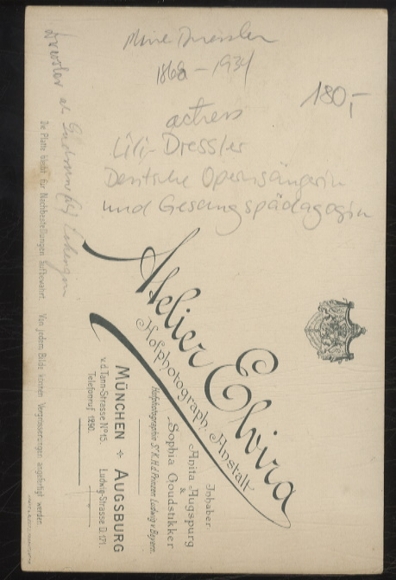 Dressler
1868 – 1934
180,–
actress
Lili Dressler
Deutsche Opernsängerin
und Gesangspädagogin
Atelier Elvira
Hofphotograph. Anstalt
Inhaber:
Anita Augspurg
&
Sophia Goudstikker
Hofphotographin Sr. K. H. d. Prinzen Ludwig v. Bayern.
MÜNCHEN ✣ AUGSBURG
v. d. Tann-Strasse No 15. Ludwig-Strasse D 171
Telefonruf 1290.
Die Platte bleibt für Nachbestellungen aufbewahrt. Von jedem Bilde können Vergrösserungen angefertigt werden.
Dressler als